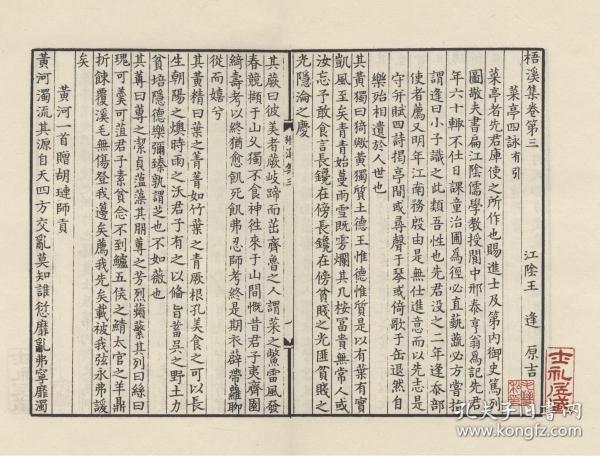 梧溪集卷第三
江陰王 逢 原吉
菜亭四詠有引
菜亭者先君庫使之所作也賜進士及第内御史篤列
圖敬夫書扁江陰儒學教授閩中邢泰亨翁爲記先君
年六十輙不仕日課童治圃爲徑必直蓺蓋必方嘗指
謂逢曰小子識之此類吾性也先君没之二年逢忝部
使者薦又明年江南務殷由是無仕進意而以先志是
守并賦四詩揭亭間或尋聲于琴或倚歌于缶退然自
樂殆相遺於人世也
其黄獨曰猗歟黄獨質土德王惟德惟質是以有葉有實
凱風至矣青青始蔓雨雪既雰爛其几桉冨貴無常人或
汝忘予敢食言長鑱在傍長鑱在傍貧賤之光匪貧賤之
光隱淪之慶
其蕨曰彼美者蕨岐蹄而茁齊魯之人謂菜之蟞雷風發
春競擷于山乂獨不食神徃來于山間慨昔君子夷齊園
綺壽考以終猶愈飢死飢弗忍師考終是期衣薜帶蘿聊
從而嬉兮
其黄精曰葉之菁菁如竹葉之青厥根孔美食之可以長
生朝陽之燠時雨之沃君子有之以脩旨蓄吴之野土力
貧培隱德樂彌臻孰謂芝也不如薇也
其蓴曰蓴之潔貞薀藻其朋蓴之芳烈蘋蘩其列曰絲曰
瑰可羹可菹君子素貧念不到鱸五侯之鯖太官之羊鼎
折餗覆溪毛無傷登我邊矣薦我先矣載被我弦永弗諼
矣
黄河一首贈胡璉師貢
黄河濁流其源自天四方交亂莫知誰愆靡亂弗寧靡濁
梧溪集三
一
士礼居藏
孔夫子旧书网
www.kongfz.com